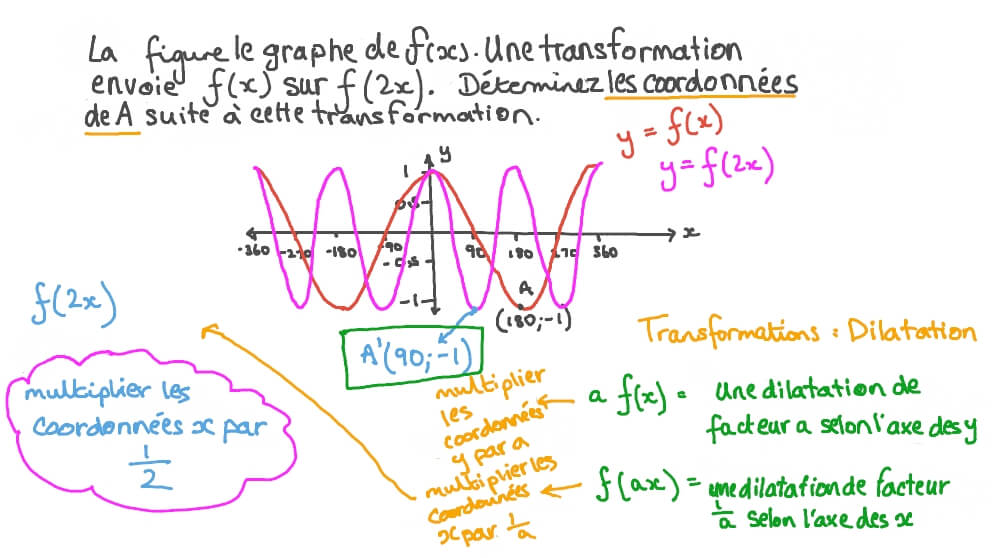 La figure le graphe de f(x). Une transformation
envoie f(x) sur f(2x). Déterminez les coordonnées
de A suite à cette transformation.
y = f(x)
y = f(2x)
y
1
0.5
x
-360 -270 -180 -90 90 180 270 360
-0.5
-1
A
(180;-1)
A'(90;-1)
f(2x)
multiplier les
coordonnées x par
1/2
Transformations : Dilatation
multiplier
les
coordonnées
y par a
a f(x) = une dilatation de
facteur a selon l'axe des y
multiplier les
coordonnées
x par 1/a
f(ax) = une dilatation de facteur
1/a selon l'axe des x